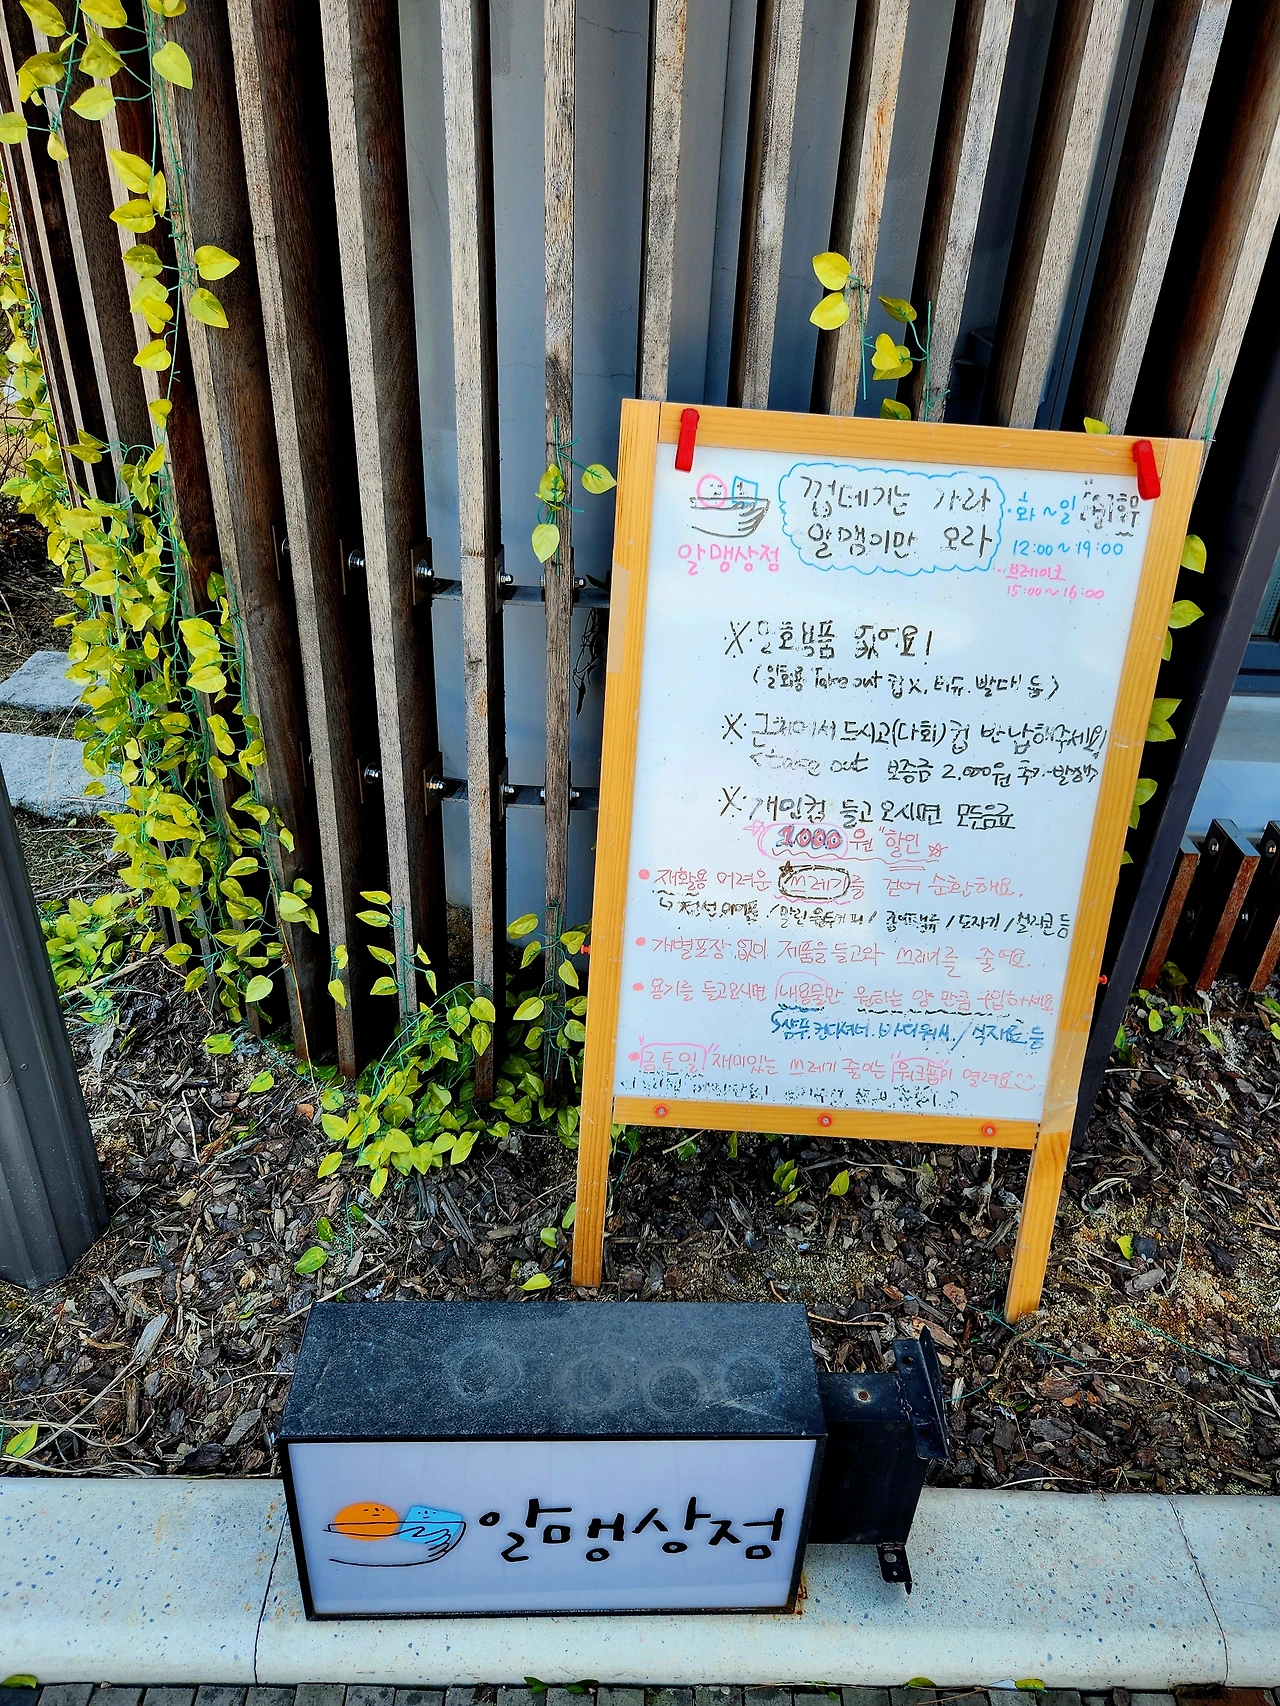 껍데기는 가라
알맹이만 오라
알맹상점
화~일 (월)휴무
12:00~19:00
브레이크
15:00~16:00
※ 일회용품 없어요!
(일회용 Take out 컵 x, 티슈, 빨대 등)
※ 근처에서 드시고(다회)컵 반납해주세요!
take out 보증금 2.000원 추가발생
※ 개인컵 들고 오시면 모든음료
1000원 "할인
• 재활용 어려운 쓰레기를 걷어 순환해요.
/ 말린 원두커피 / 종이팩류 / 도자기 / 실리콘 등
• 개별포장 없이 제품을 들고와 쓰레기를 줄여요.
• 용기를 들고오시면 내용물만 원하는 양 만큼 구입하세요
샴푸 컨디셔너 바디워시 / 식재료 등
• "금토일" 재미있는 쓰레기 줄이는 "워크숍"이 열려요
알맹상점